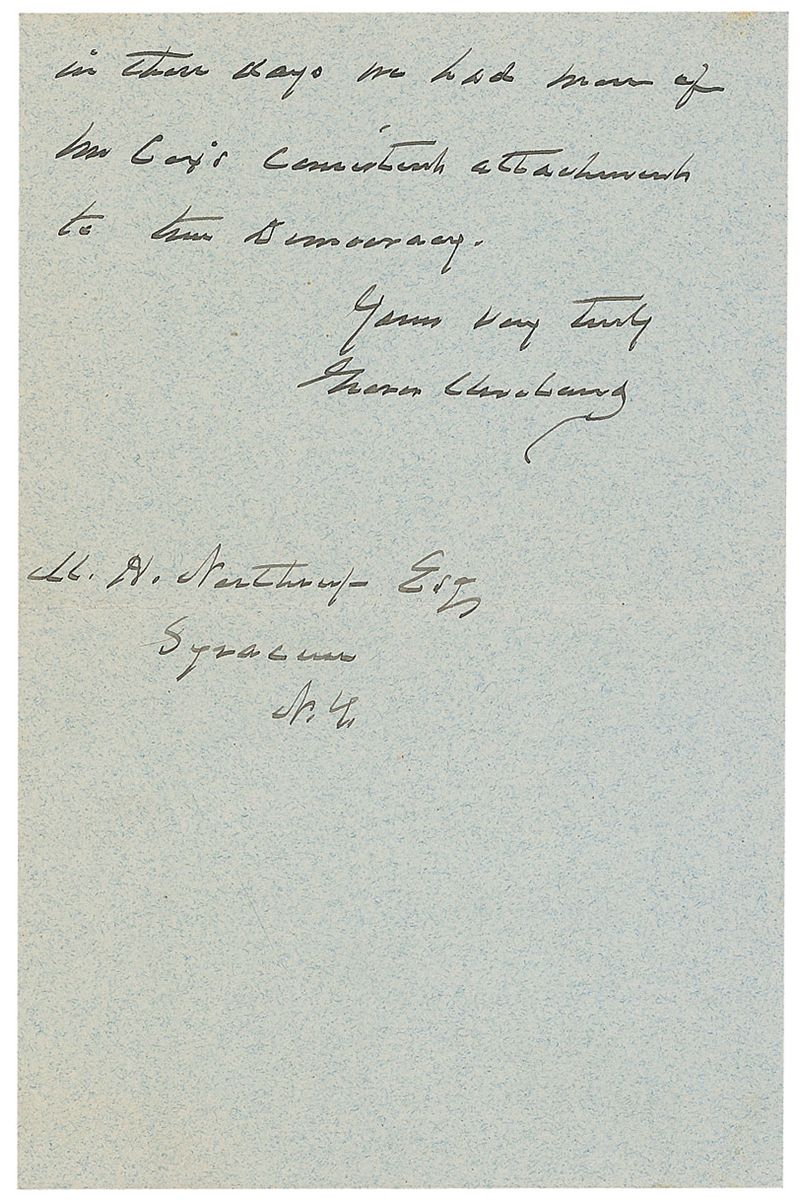 in these days we had more of
Mr Cox's consistent attachment
to true Democracy.
Yours very truly
Grover Cleveland
M. H. Northrup Esq
Syracuse
N. Y.